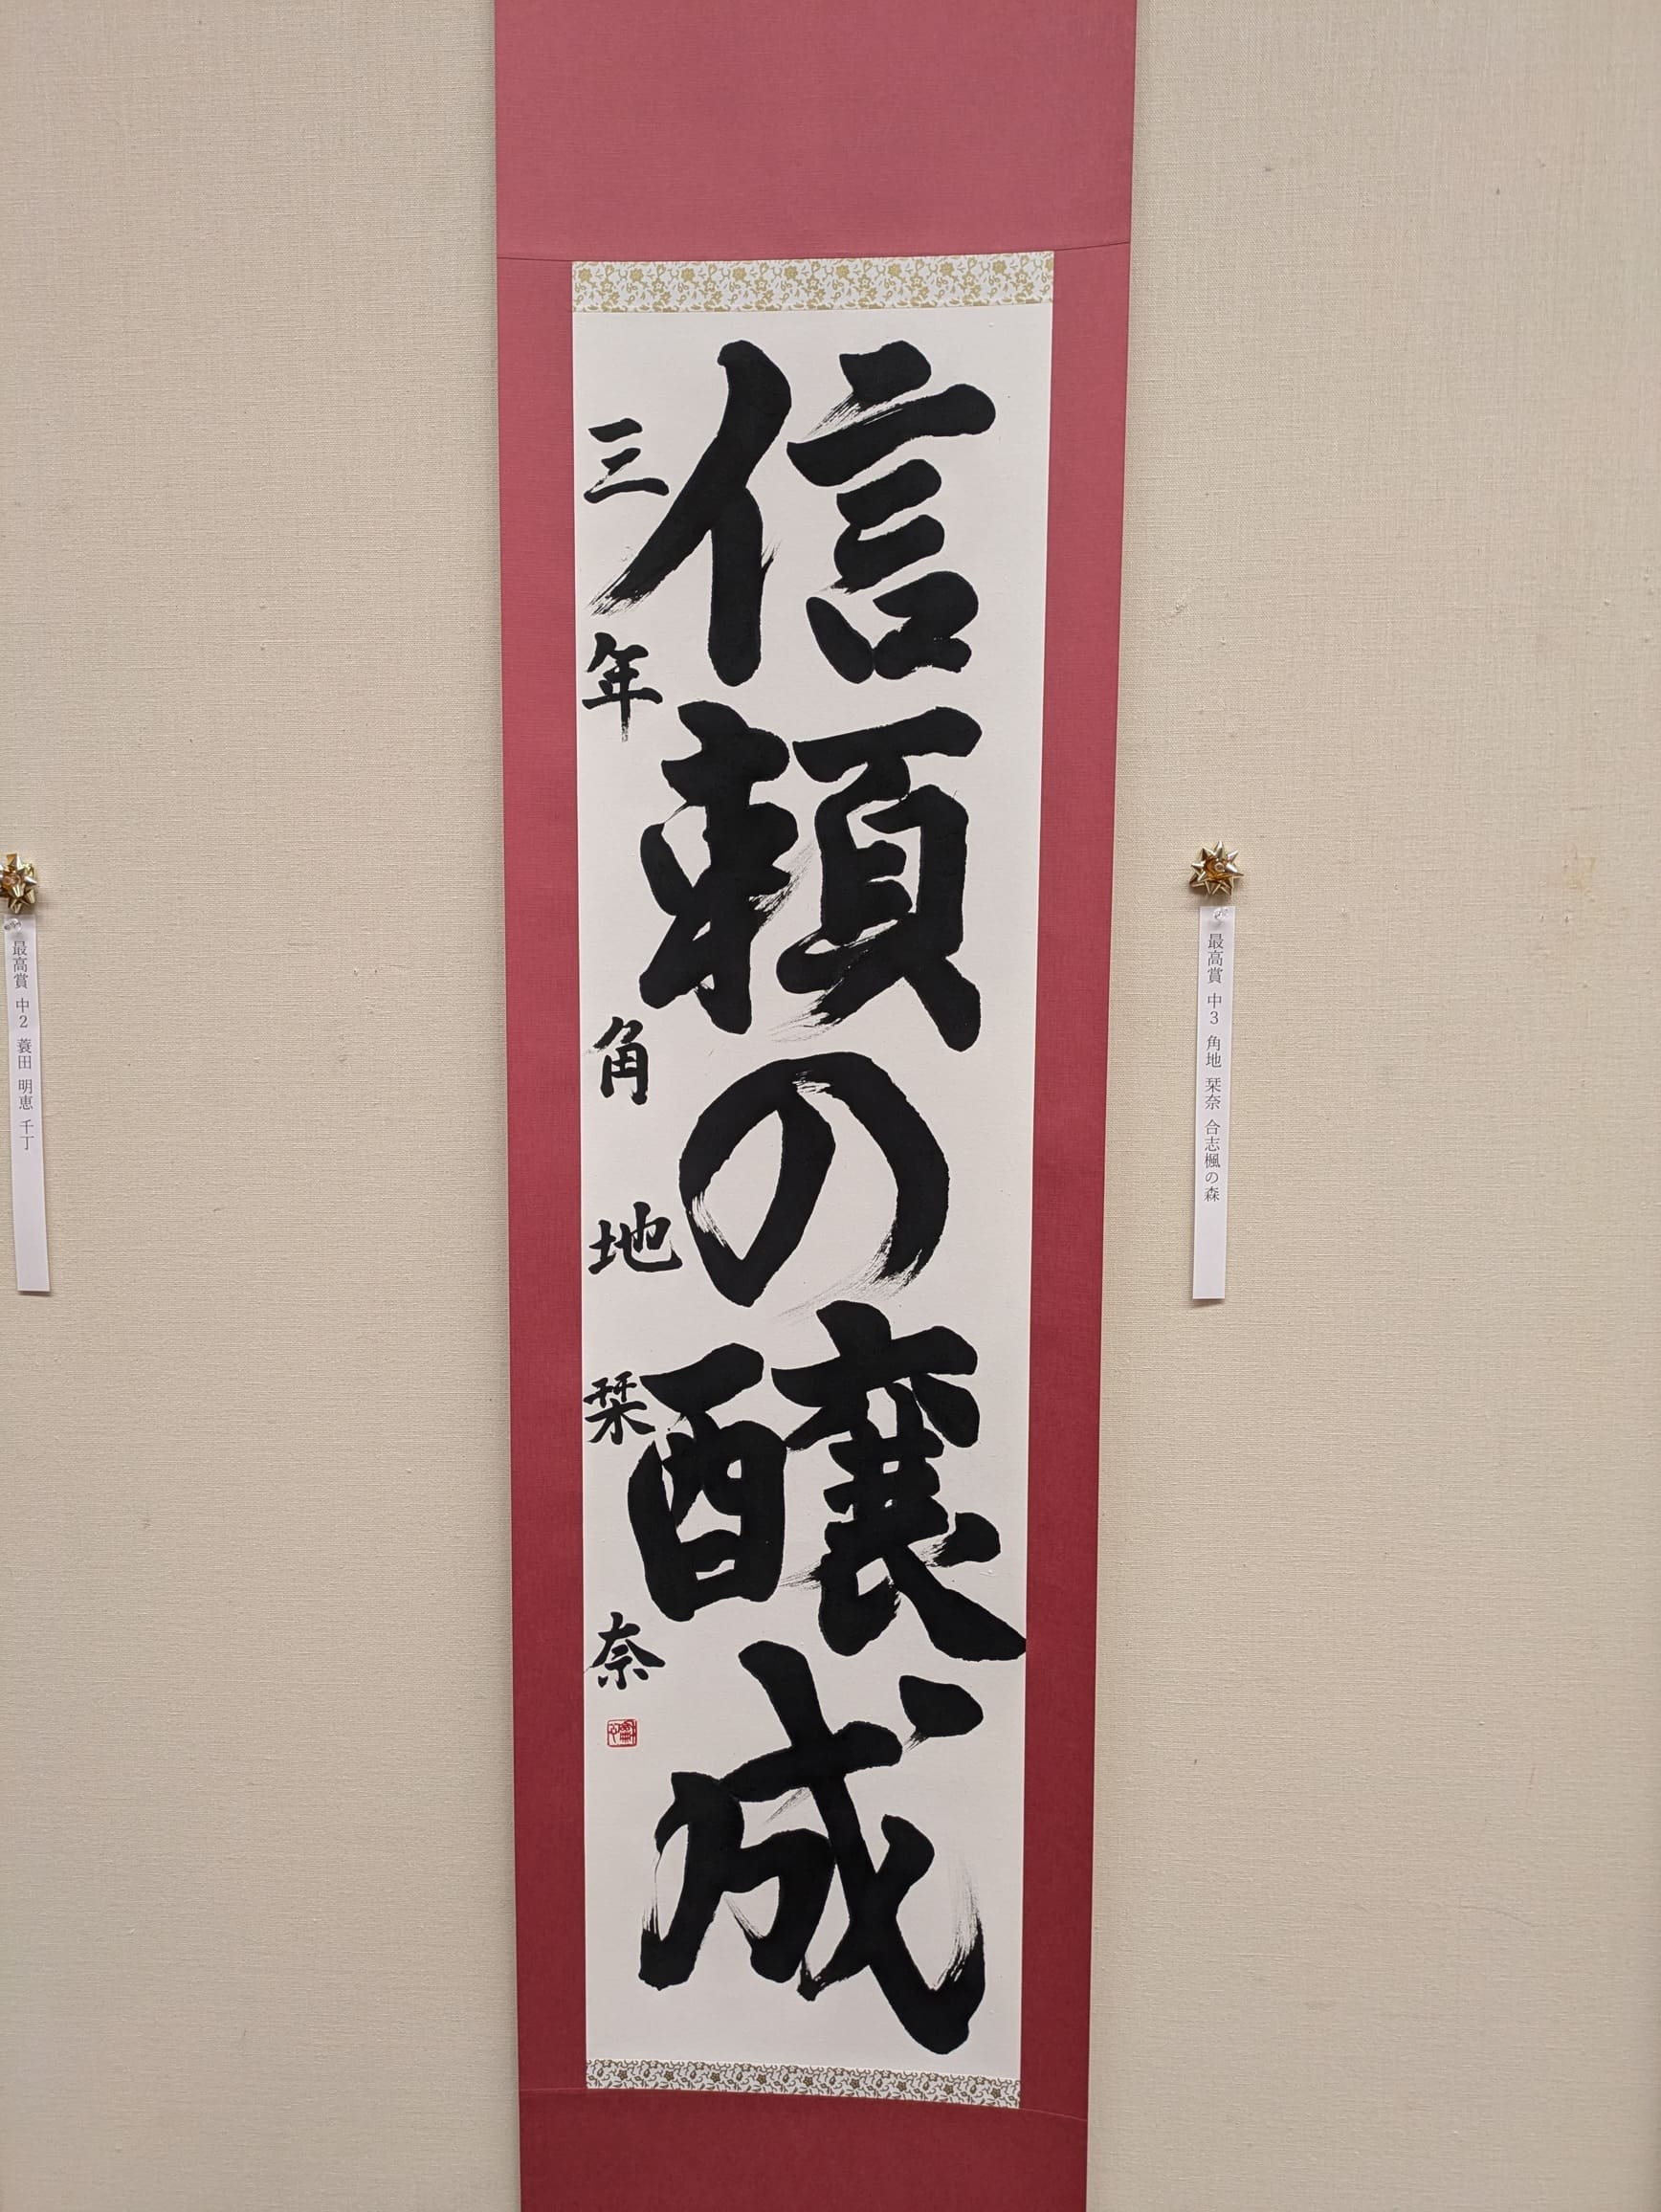 信頼の醸成
三年 角地 栞奈
最高賞 中3 角地 栞奈 合志楓の森
最高賞 中2 蓑田 明恵 千丁